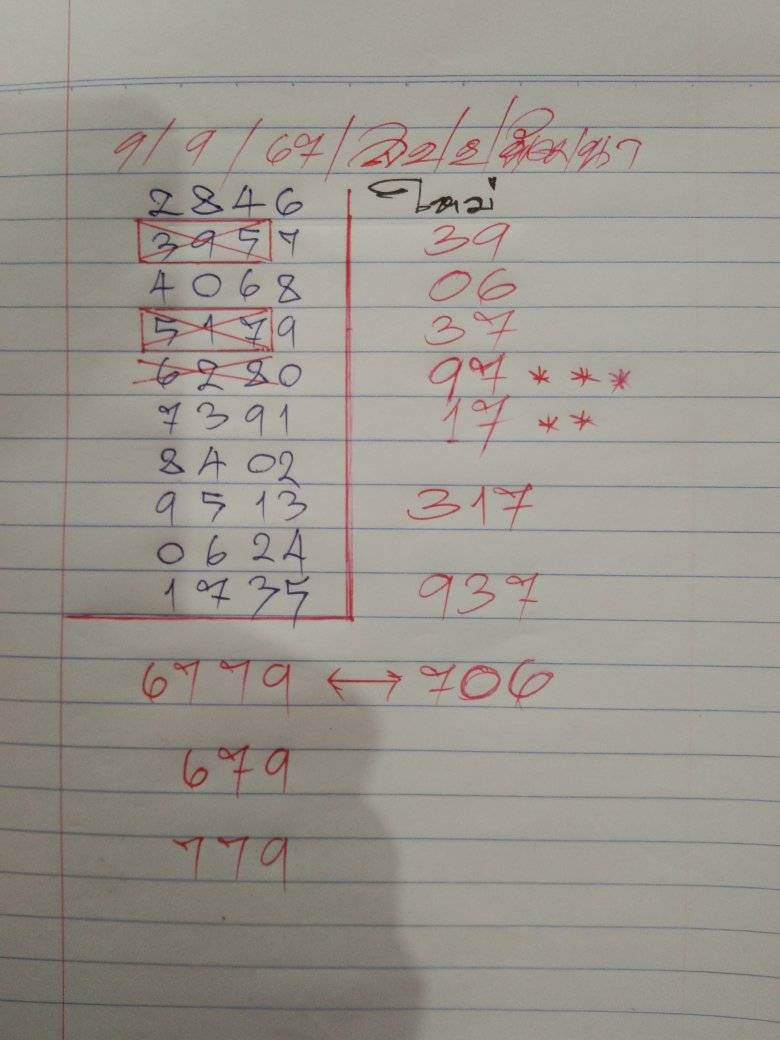 9/9/67/
2846
3957 39
4068 06
5179 37
6280 97 ***
7391 17 **
8402
9513 317
0624
1735 937
6779 ↔ 706
679
779